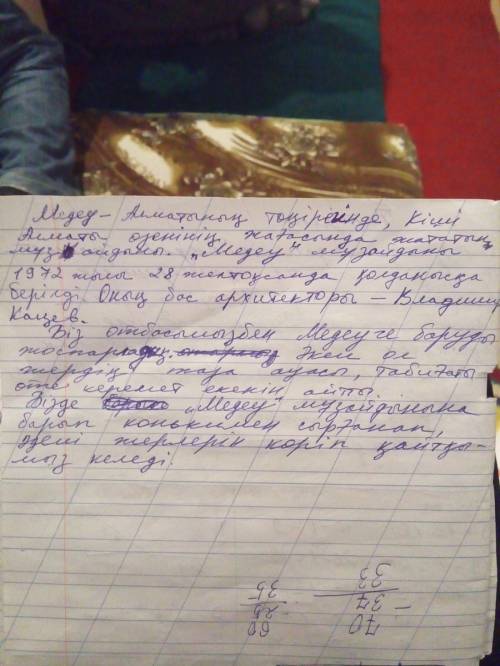 Медеу – Алматының төңірегінде, Кіші
Алматы өзенінің жағасында жататын
мұз айдыны. „Медеу" мұзайданы
1972 жылы 28 желтоқсанда қолданысқа
берілді. Оның бас архитекторы – Владимир
Кацев.
Біз отбасымызбен Медеуге баруды
жоспарладық. Әкем ол
жердің таза ауасы, табиғаты
өте керемет екенін айтты.
Бізде „Медеу" мұзайдынына
барып конькимен сырғанап,
әдемі жерлерін көріп қайтқы-
мыз келеді.
70
- 37
33
60
25
35